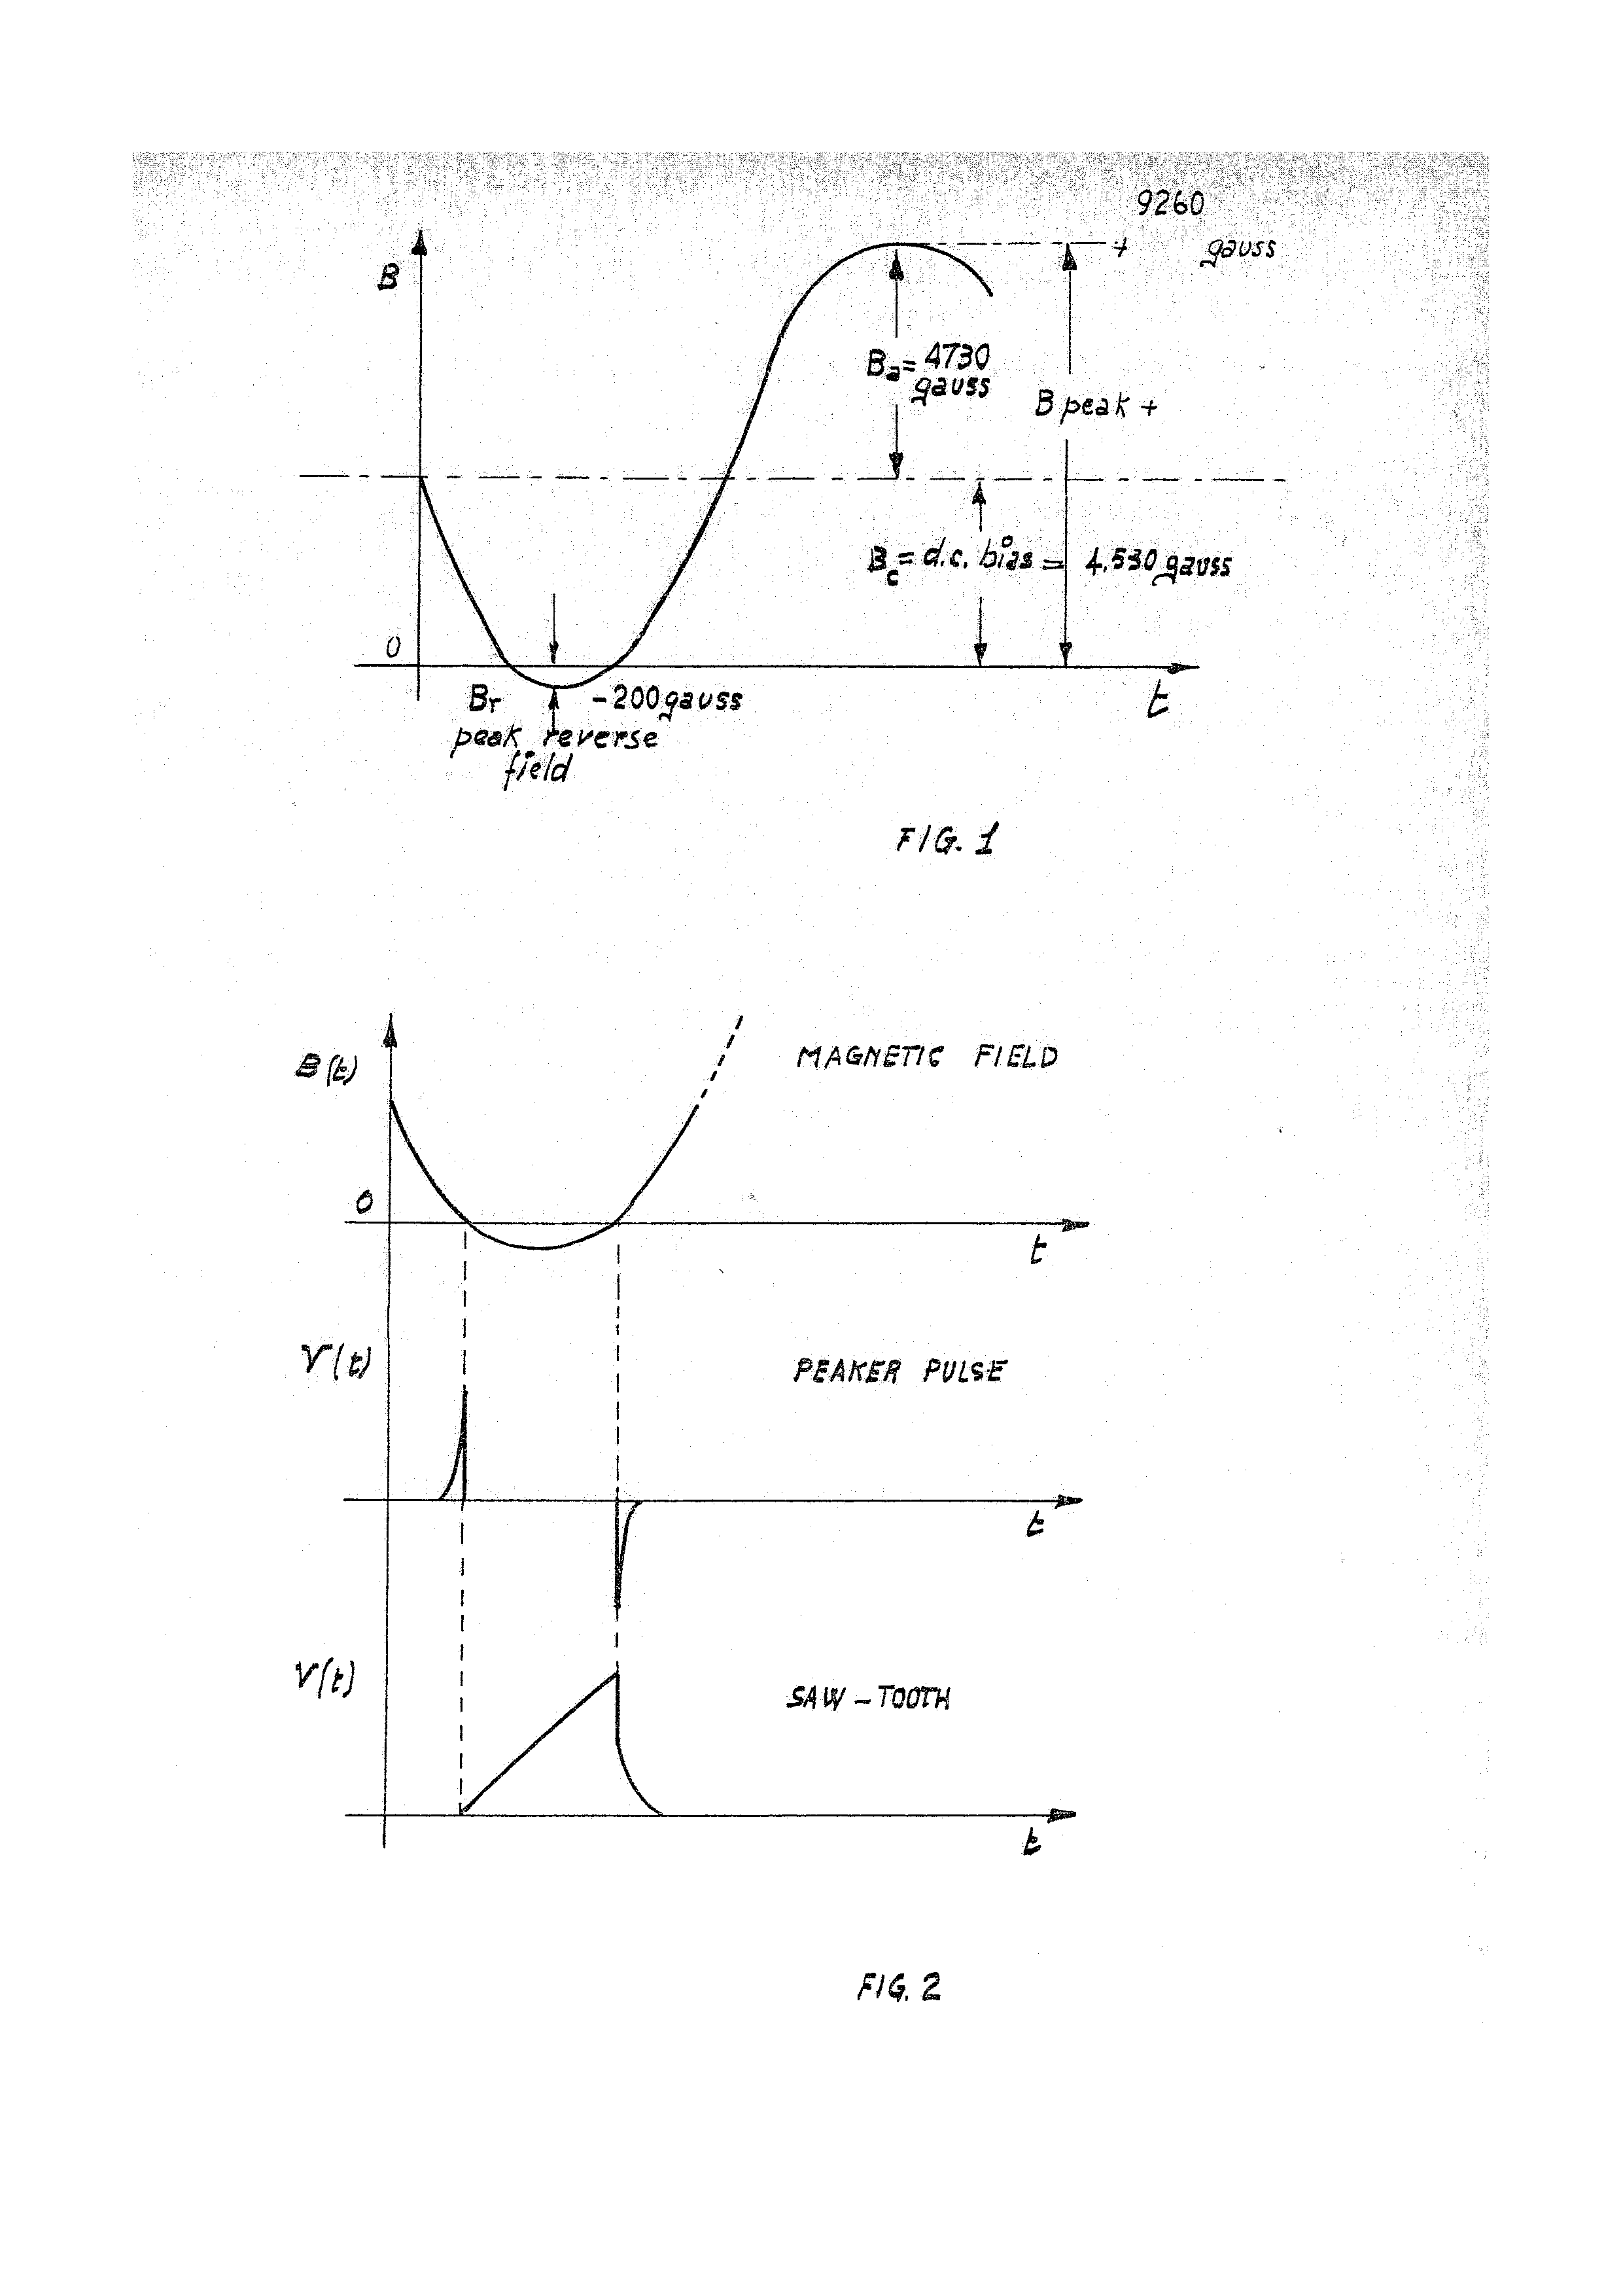 9260
+ gauss
B
Ba = 4730
gauss
B peak +
Bc = d.c. bias = 4.530 gauss
0
t
Br -200 gauss
peak reverse
field
FIG. 1
B(t)
MAGNETIC FIELD
0
t
V(t)
PEAKER PULSE
t
V(t)
SAW-TOOTH
t
FIG. 2